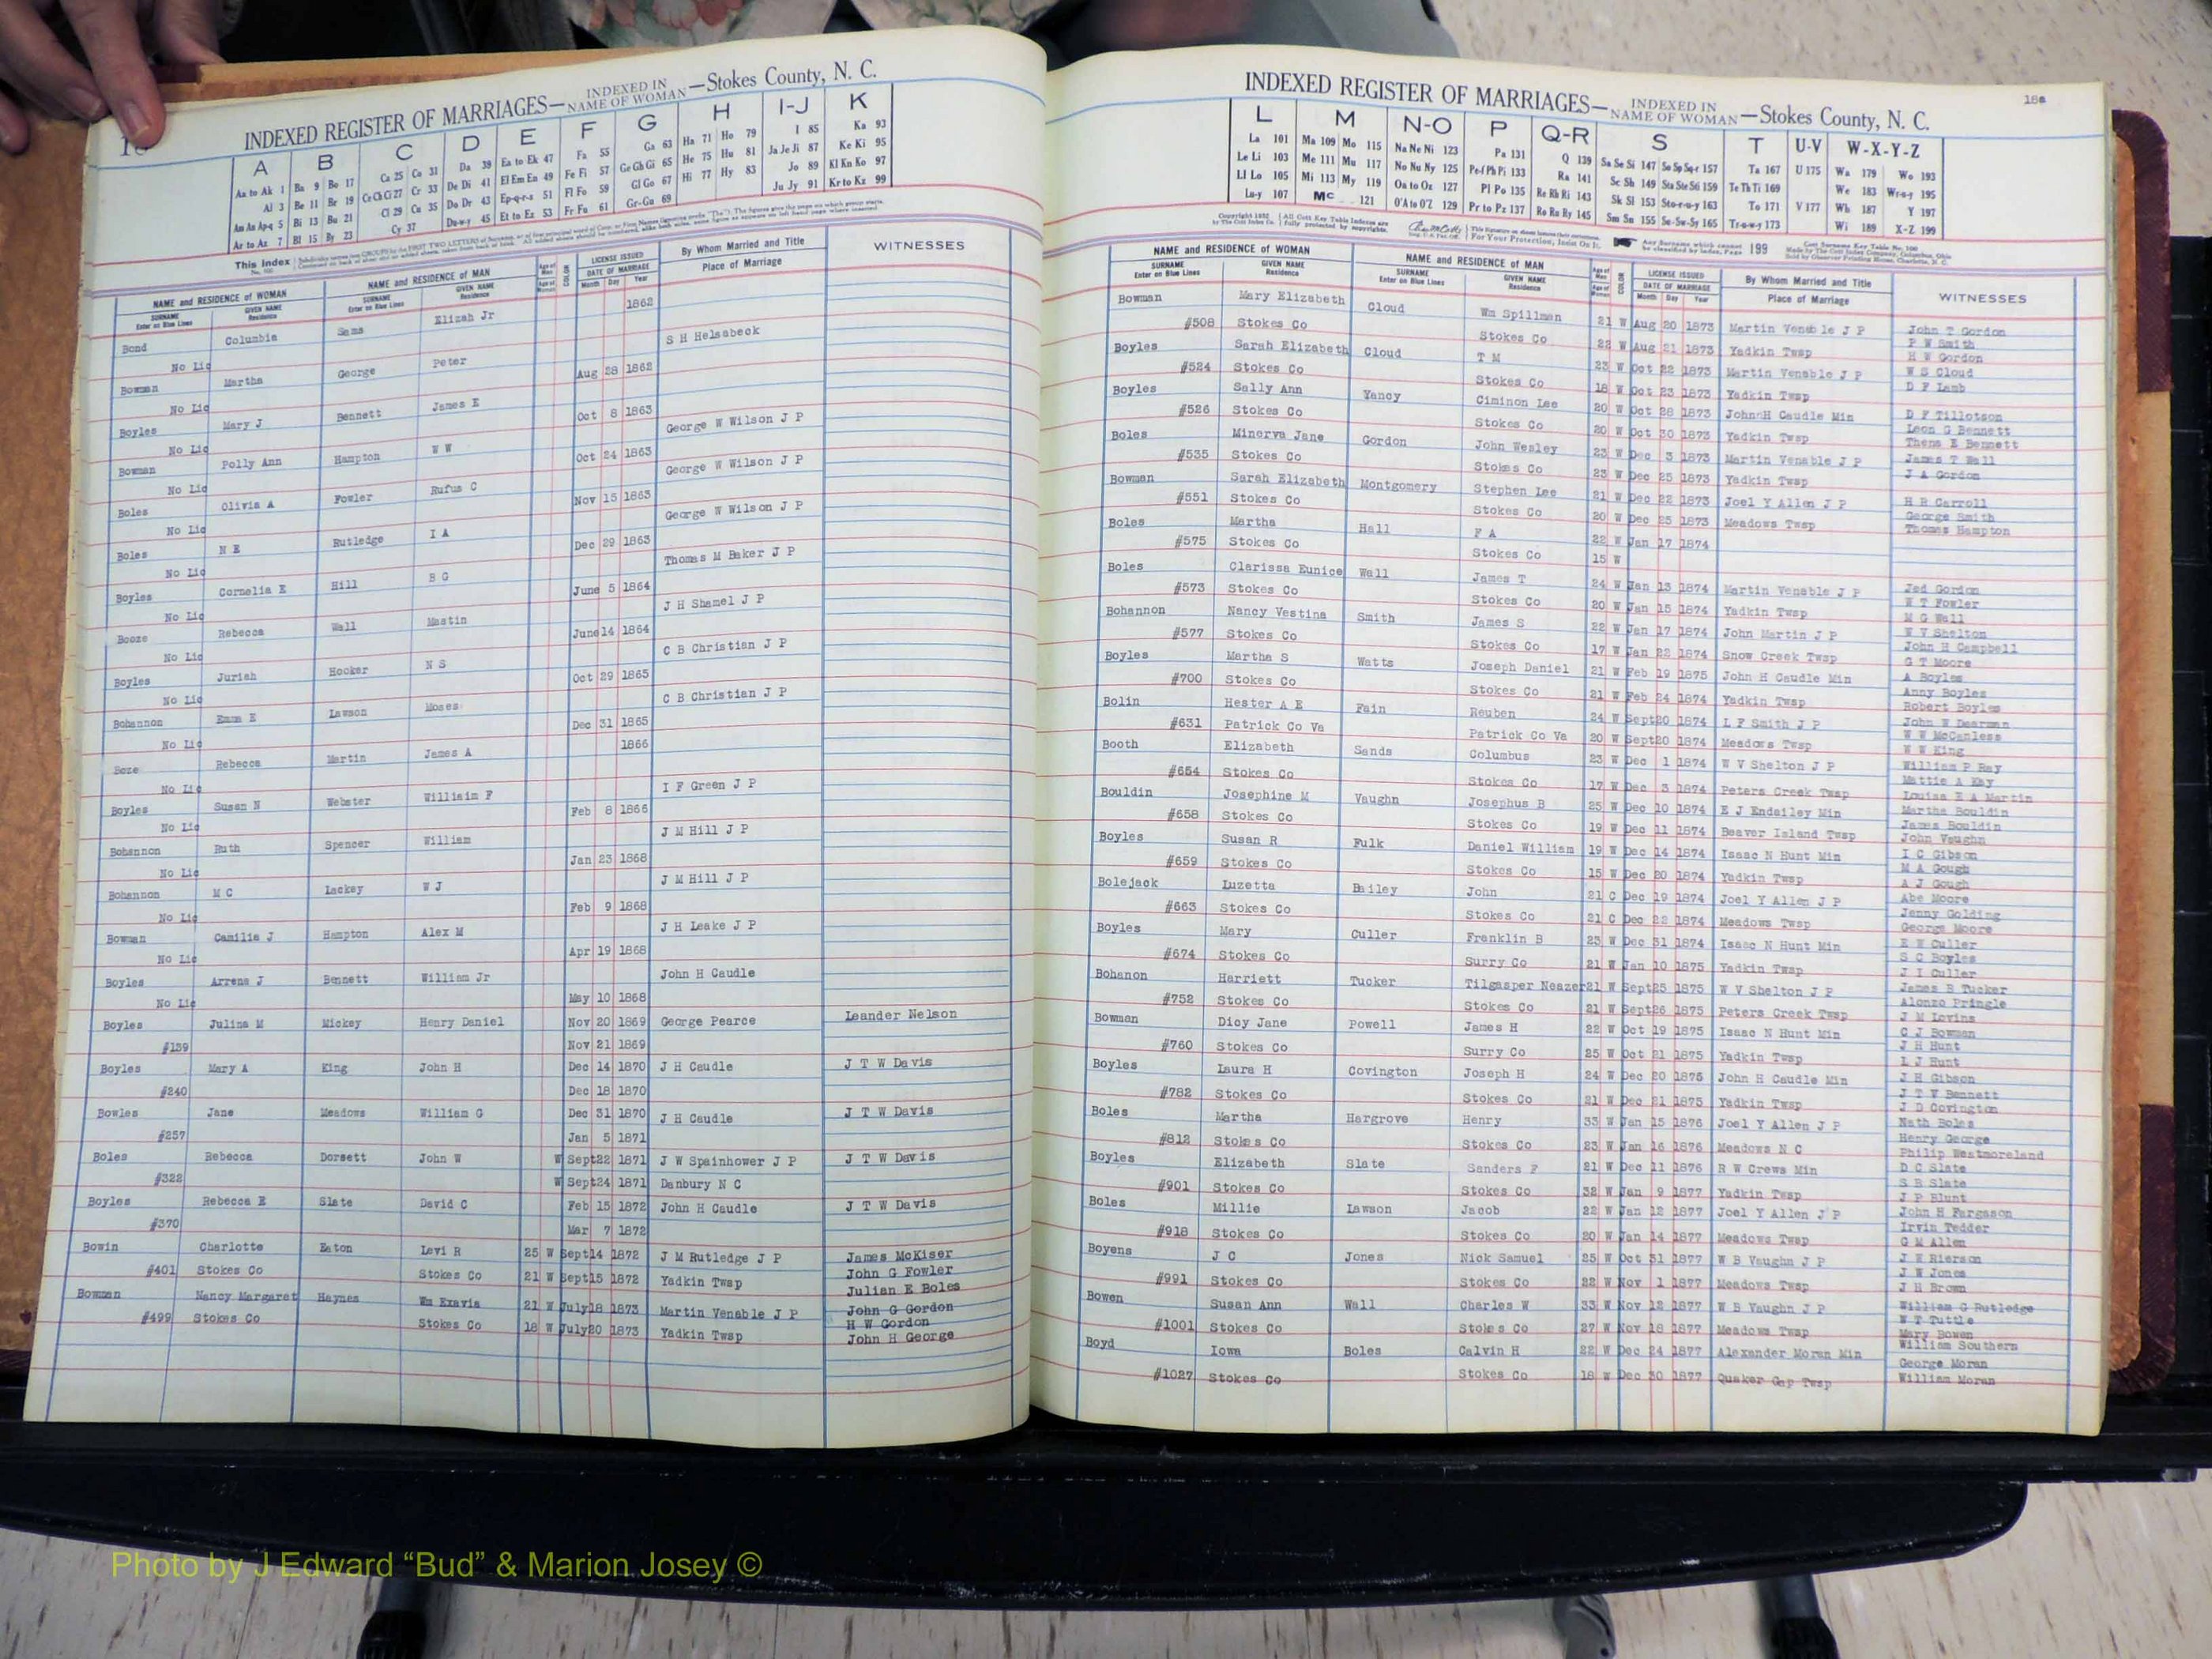 INDEXED REGISTER OF MARRIAGES—INDEXED IN NAME OF WOMAN—Stokes County, N. C.
A B C D E F G H I-J K
Aa to Ak 1 Ba 9 Bo 17 Ca 25 Co 31 Da 39 Ea to Ek 47 Fa 55 Ga 63 Ha 71 Ho 79 I 85 Ka 93
Al 3 Be 11 Br 19 Ce Ch Ci 27 Cr 33 De Di 41 El Em En 49 Fe Fi 57 Ge Gh Gi 65 He 75 Hu 81 Ja Je Ji 87 Ke Ki 95
Am An Ap-q 5 Bi 13 Bu 21 Cl 29 Cu 35 Do Dr 43 Ep-q-r-s 51 Fl Fo 59 Gl Go 67 Hi 77 Hy 83 Jo 89 Kl Kn Ko 97
Ar to Az 7 Bl 15 By 23 Cy 37 Du-w-y 45 Et to Ez 53 Fr Fu 61 Gr-Gu 69 Ju Jy 91 Kr to Kz 99
NAME and RESIDENCE of WOMAN NAME and RESIDENCE of MAN LICENSE ISSUED By Whom Married and Title WITNESSES
SURNAME GIVEN NAME SURNAME GIVEN NAME DATE OF MARRIAGE Place of Marriage
Enter on Blue Lines Residence Enter on Blue Lines Residence Month Day Year
Bond Columbia Sams Elizah Jr 1862
No Lic S H Helsabeck
Bowman Martha George Peter Aug 28 1862
No Lic
Boyles Mary J Bennett James E Oct 8 1863
No Lic George W Wilson J P
Bowman Polly Ann Hampton W W Oct 24 1863
No Lic George W Wilson J P
Boles Olivia A Fowler Rufus C Nov 15 1863
No Lic George W Wilson J P
Boles N E Rutledge I A Dec 29 1863
No Lic Thomas M Baker J P
Boyles Cornelia E Hill B G June 5 1864
No Lic J H Shamel J P
Booze Rebecca Wall Mastin June 14 1864
No Lic C B Christian J P
Boyles Juriah Hooker N S Oct 29 1865
No Lic C B Christian J P
Bohannon Emma E Lawson Moses Dec 31 1865
No Lic 1866
Boze Rebecca Martin James A
No Lic I F Green J P
Boyles Susan N Webster Williaim F Feb 8 1866
No Lic J M Hill J P
Bohannon Ruth Spencer William Jan 23 1868
No Lic J M Hill J P
Bohannon M C Lackey W J Feb 9 1868
No Lic J H Leake J P
Bowman Camilie J Hampton Alex M Apr 19 1868
No Lic John H Caudle
Boyles Arrena J Bennett William Jr
No Lic May 10 1868
Boyles Julina M Mickey Henry Daniel Nov 20 1869 George Pearce Leander Nelson
#139 Nov 21 1869
Boyles Mary A King John H Dec 14 1870 J H Caudle J T W Davis
#240 Dec 18 1870
Bowles Jane Meadows William G Dec 31 1870 J H Caudle J T W Davis
#257 Jan 5 1871
Boles Rebecca Dorsett John W W Sept 22 1871 J W Spainhower J P J T W Davis
#322 W Sept 24 1871 Danbury N C
Boyles Rebecca E Slate David C Feb 15 1872 John H Caudle J T W Davis
#370 Mar 7 1872
Bowin Charlotte Eaton Levi R 25 W Sept 14 1872 J M Rutledge J P James McKiser
#401 Stokes Co Stokes Co 21 W Sept 15 1872 Yadkin Twsp John G Fowler
Julian E Boles
Bowman Nancy Margaret Haynes Wm Exavia 21 W July 18 1873 Martin Venable J P John G Gordon
#499 Stokes Co Stokes Co 18 W July 20 1873 Yadkin Twsp H W Gordon
John H George
INDEXED REGISTER OF MARRIAGES—INDEXED IN NAME OF WOMAN—Stokes County, N. C.
18a
L M N-O P Q-R S T U-V W-X-Y-Z
La 101 Ma 109 Mo 115 Na Ne Ni 123 Pa 131 Q 139 Sa Se Si 147 So Sp Sq-r 157 Ta 167 U 175 Wa 179 Wo 193
Le Li 103 Me 111 Mu 117 No Nu Ny 125 Pe-f Ph Pi 133 Ra 141 Sc Sh 149 Sta Ste Sti 159 Te Th Ti 169 We 183 Wr-u-y 195
Ll Lo 105 Mi 113 My 119 Oa to Oz 127 Pl Po 135 Re Rh Ri 143 Sk Sl 153 Sto-r-u-y 163 To 171 V 177 Wh 187 Y 197
Lu-y 107 Mc 121 O'A to O'Z 129 Pr to Pz 137 Ro Ru Ry 145 Sm Sn 155 Su-Sw-Sy 165 Tr-u-w-y 173 Wi 189 X-Z 199
NAME and RESIDENCE of WOMAN NAME and RESIDENCE of MAN LICENSE ISSUED By Whom Married and Title WITNESSES
SURNAME GIVEN NAME SURNAME GIVEN NAME DATE OF MARRIAGE Place of Marriage
Enter on Blue Lines Residence Enter on Blue Lines Residence Month Day Year
Bowman Mary Elizabeth Cloud Wm Spillman 21 W Aug 20 1873 Martin Venable J P John T Gordon
#508 Stokes Co Stokes Co 22 W Aug 21 1873 Yadkin Twsp P W Smith
H W Gordon
Boyles Sarah Elizabeth Cloud T M 23 W Oct 22 1873 Martin Venable J P W S Cloud
#524 Stokes Co Stokes Co 18 W Oct 23 1873 Yadkin Twsp D F Lamb
Boyles Sally Ann Yancy Ciminon Lee 20 W Oct 28 1873 John H Caudle Min D F Tillotson
#526 Stokes Co Stokes Co 20 W Oct 30 1873 Yadkin Twsp Leon G Bennett
Thena E Bennett
Boles Minerva Jane Gordon John Wesley 23 W Dec 3 1873 Martin Venable J P James T Wall
#535 Stokes Co Stokes Co 23 W Dec 25 1873 Yadkin Twsp J A Gordon
Bowman Sarah Elizabeth Montgomery Stephen Lee 21 W Dec 22 1873 Joel Y Allen J P H R Carroll
#551 Stokes Co Stokes Co 20 W Dec 25 1873 Meadows Twsp George Smith
Thomas Hampton
Boles Martha Hall F A 22 W Jan 17 1874
#575 Stokes Co Stokes Co 15 W
Boles Clarissa Eunice Wall James T 24 W Jan 13 1874 Martin Venable J P Jed Gordon
#573 Stokes Co Stokes Co 20 W Jan 15 1874 Yadkin Twsp W T Fowler
M G Wall
Bohannon Nancy Vestina Smith James S 22 W Jan 17 1874 John Martin J P W V Shelton
#577 Stokes Co Stokes Co 17 W Jan 22 1874 Snow Creek Twsp John H Campbell
G T Moore
Boyles Martha S Watts Joseph Daniel 21 W Feb 19 1875 John H Caudle Min A Boyles
#700 Stokes Co Stokes Co 21 W Feb 24 1874 Yadkin Twsp Anny Boyles
Robert Boyles
Bolin Hester A E Fain Reuben 24 W Sept 20 1874 L F Smith J P John W Dearman
#631 Patrick Co Va Patrick Co Va 20 W Sept 20 1874 Meadows Twsp W W McCanless
W W King
Booth Elizabeth Sands Columbus 23 W Dec 1 1874 W V Shelton J P William P Ray
#654 Stokes Co Stokes Co 17 W Dec 3 1874 Peters Creek Twsp Mattie A Ray
Louisa E A Martin
Bouldin Josephine M Vaughn Josephus B 25 W Dec 10 1874 E J Endsiley Min Martha Bouldin
#658 Stokes Co Stokes Co 19 W Dec 11 1874 Beaver Island Twsp James Bouldin
John Vaughn
Boyles Susan R Fulk Daniel William 19 W Dec 14 1874 Isaac N Hunt Min I C Gibson
#659 Stokes Co Stokes Co 15 W Dec 20 1874 Yadkin Twsp M A Gough
A J Gough
Bolejack Luzetta Bailey John 21 C Dec 19 1874 Joel Y Allen J P Abe Moore
#663 Stokes Co Stokes Co 21 C Dec 22 1874 Meadows Twsp Jenny Golding
George Moore
Boyles Mary Culler Franklin B 23 W Dec 31 1874 Isaac N Hunt Min E W Culler
#674 Stokes Co Surry Co 21 W Jan 10 1875 Yadkin Twsp S C Boyles
J I Culler
Bohanon Harriett Tucker Tilgasper Neazer 21 W Sept 25 1875 W V Shelton J P James B Tucker
#752 Stokes Co Stokes Co 21 W Sept 26 1875 Peters Creek Twsp Alonzo Pringle
J M Lovins
Bowman Dicy Jane Powell James H 22 W Oct 19 1875 Isaac N Hunt Min C J Bowman
#760 Stokes Co Surry Co 25 W Oct 21 1875 Yadkin Twsp J H Hunt
L J Hunt
Boyles Laura H Covington Joseph H 24 W Dec 20 1875 John H Caudle Min J H Gibson
#782 Stokes Co Stokes Co 21 W Dec 21 1875 Yadkin Twsp J T W Bennett
J D Covington
Boles Martha Hargrove Henry 33 W Jan 15 1876 Joel Y Allen J P Nath Boles
#812 Stokes Co Stokes Co 23 W Jan 16 1876 Meadows N C Henry George
Philip Westmoreland
Boyles Elizabeth Slate Sanders F 21 W Dec 11 1876 R W Crews Min D C Slate
#901 Stokes Co Stokes Co 32 W Jan 9 1877 Yadkin Twsp S B Slate
J P Blunt
Boles Millie Lawson Jacob 22 W Jan 12 1877 Joel Y Allen J P John H Fargason
#918 Stokes Co Stokes Co 20 W Jan 14 1877 Meadows Twsp Irvin Tedder
G M Allen
Boyens J C Jones Nick Samuel 25 W Oct 31 1877 W B Vaughn J P J W Rierson
#991 Stokes Co Stokes Co 22 W Nov 1 1877 Meadows Twsp J W Jones
J H Brown
Bowen Susan Ann Wall Charles W 33 W Nov 12 1877 W B Vaughn J P William G Rutledge
#1001 Stokes Co Stokes Co 27 W Nov 18 1877 Meadows Twsp W T Tuttle
Mary Bowen
Boyd Iowa Boles Calvin H 22 W Dec 24 1877 Alexander Moran Min William Southern
#1027 Stokes Co Stokes Co 18 W Dec 30 1877 Quaker Gap Twsp George Moran
William Moran
Photo by J Edward “Bud” & Marion Josey ©